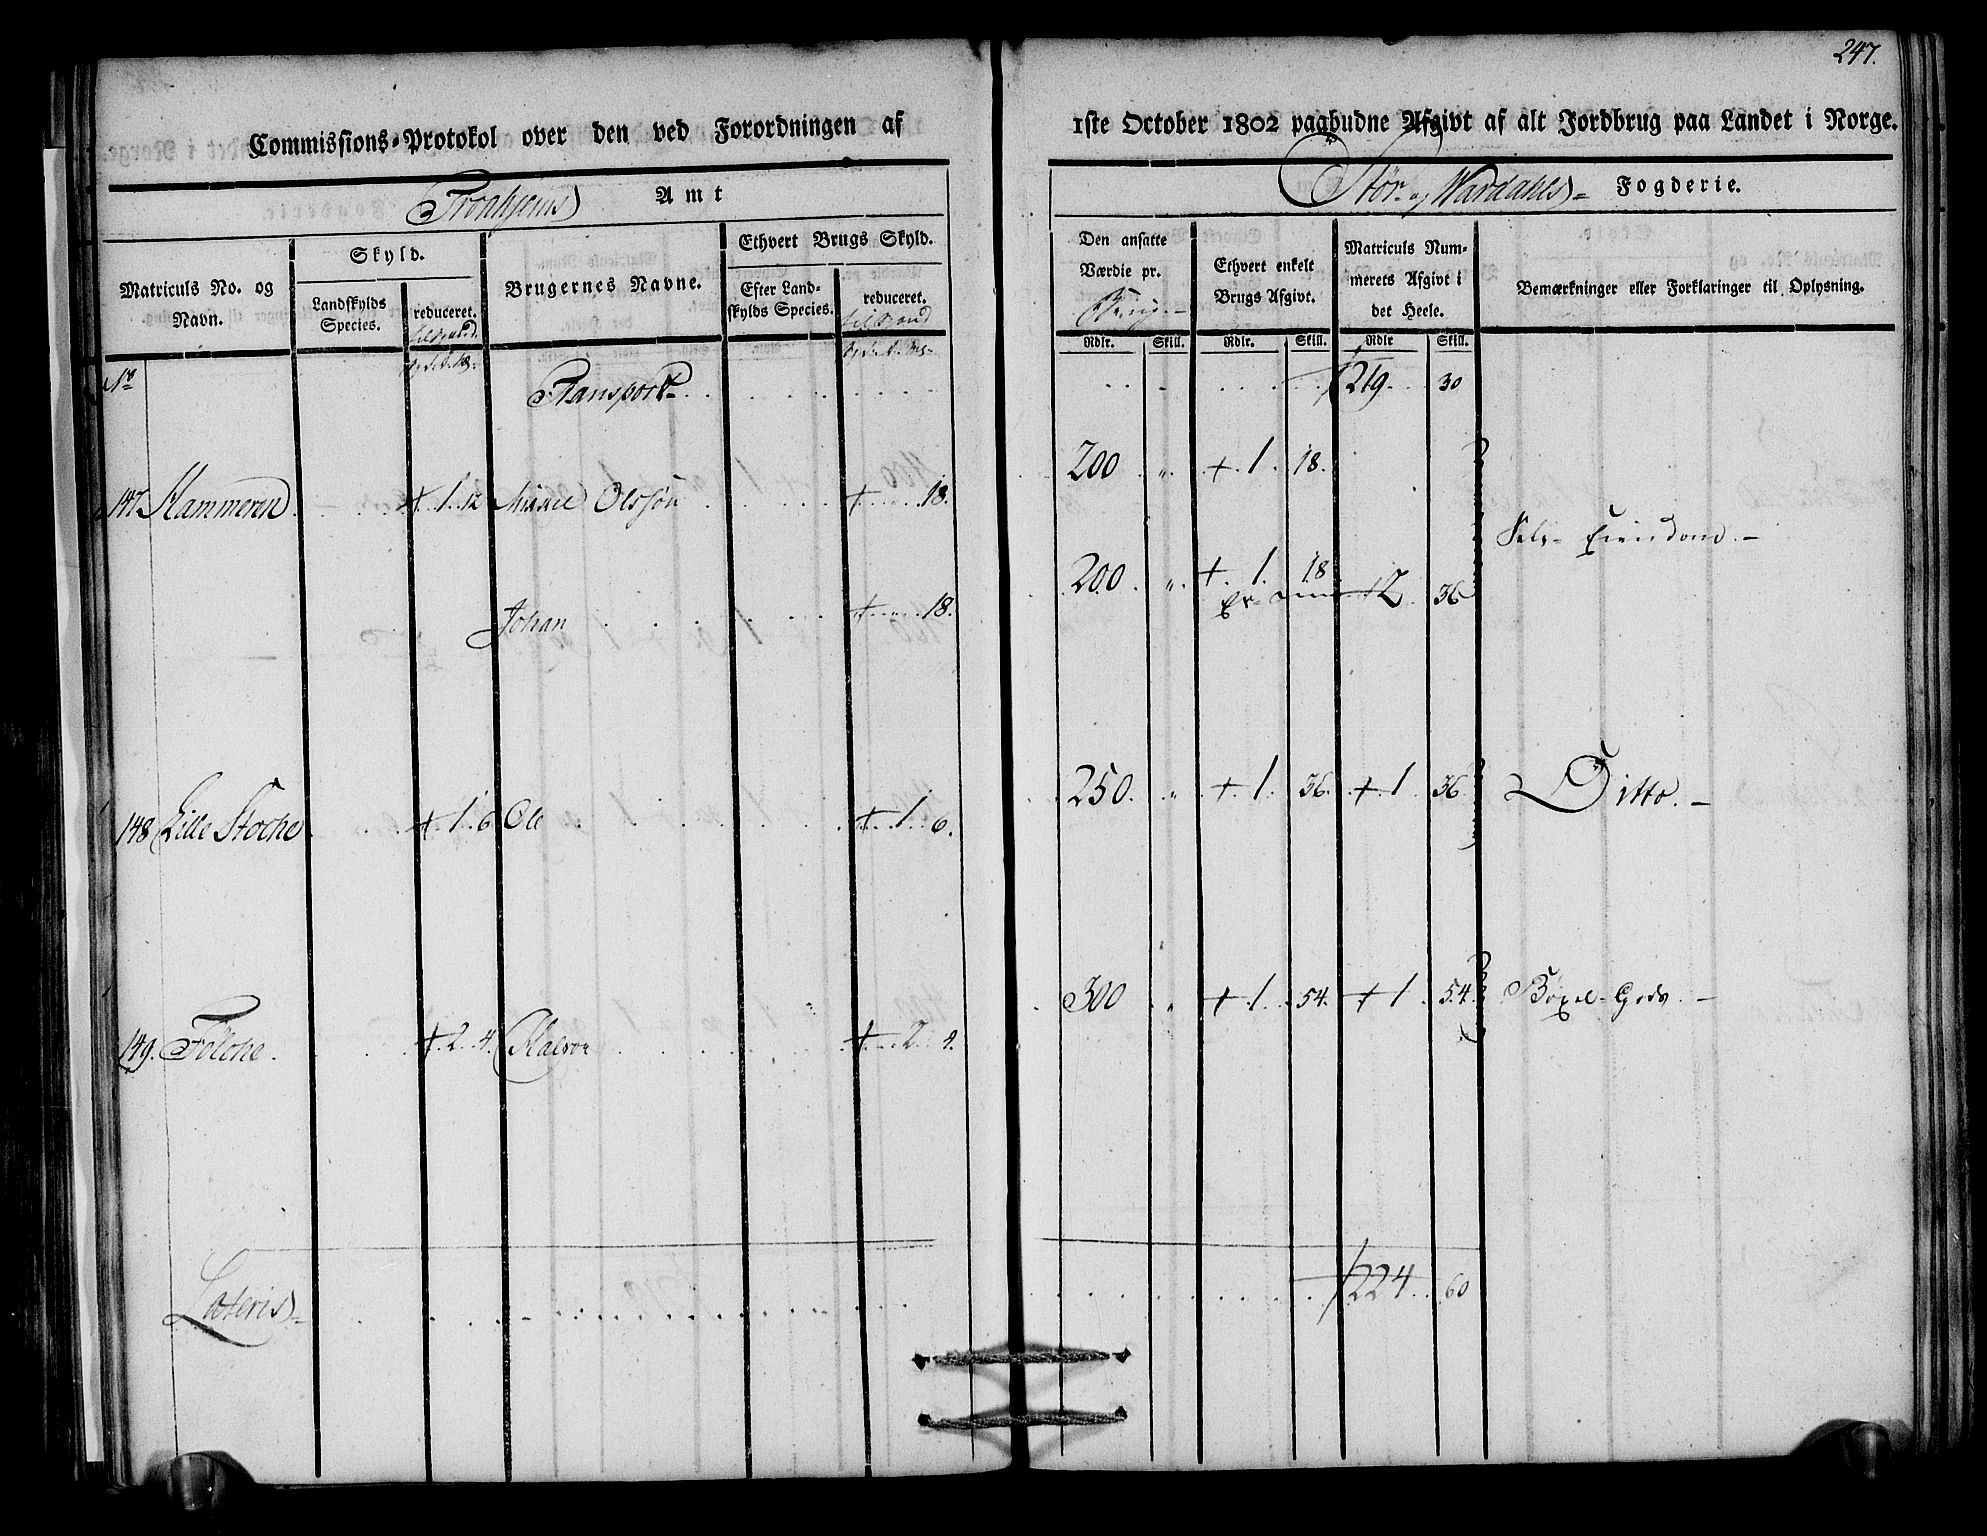 247.
Commissions-Protokol over den ved Forordningen af 1ste October 1802 paabudne Afgivt af alt Jordbrug paa Landet i Norge.
Tronhjems Amt
Stør- og Wærdahls Fogderie.
Matriculs No. og Navn.
Skyld.
Landskylds Species.
reduceret.
Brugernes Navne.
Ethvert Brugs Skyld.
Efter Landskylds Species.
reduceret.
Den ansatte Værdie pr. Brug.
Ethvert enkelt Brugs Afgivt.
Matriculs Nummerets Afgivt i det Heele.
Bemærkninger eller Forklaringer til Oplysning.
Rdlr. Skill. Rdlr. Skill. Rdlr Skill.
Transport 1219 30
147 Hammeren 1. 12 Mikkel Olssøn 18. 200 " 1 18.
Selv-Eiendom.
Johan 18. 200 " 1. 18 2 36
148 Lille Stoche 1 6 Ole 1 6. 250. " 1. 36. 1 36 Ditto.
149. Folche 2 4. Halvor 2 4. 300 " 1 54. 1 54. Bøxel-Gods.
Lateris 1224 60